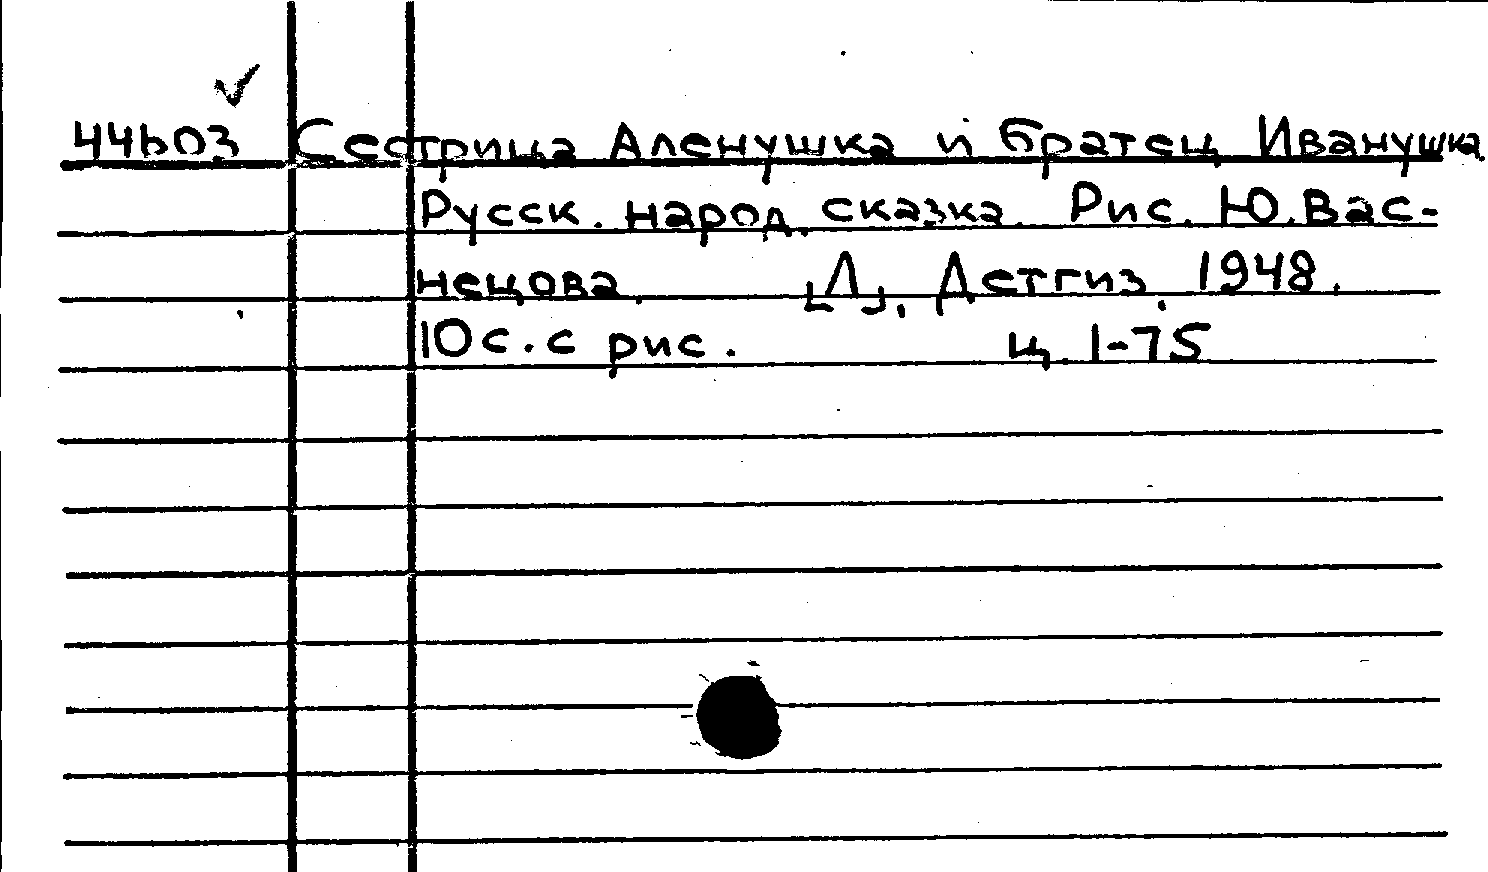 44603 Сестрица Аленушка и братец Иванушка.
Русск. народ. сказка. Рис. Ю. Вас-
нецова. [Л], Детгиз, 1948.
10с. с рис. ц. 1-75